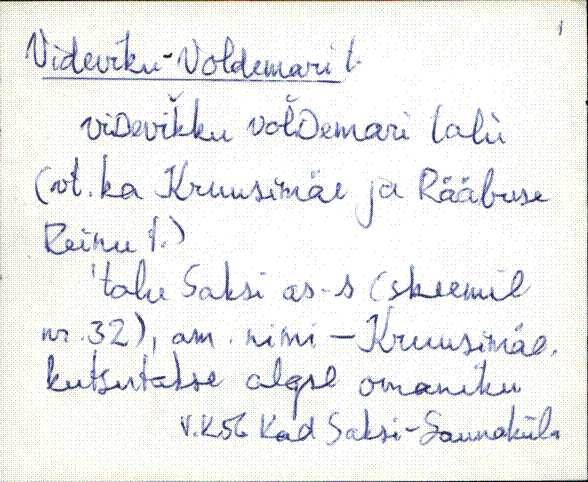 1
Videviku-Voldemari t.
viDevìkku volDemari talù
(vt. ka Kruusimäe ja Rääbuse
Reinu t.)
'talu Saksi as-s (skeemil
nr. 32), am. nimi – Kruusimäe,
kutsutakse algse omaniku
V.K56 Kad Saksi-Saunaküla